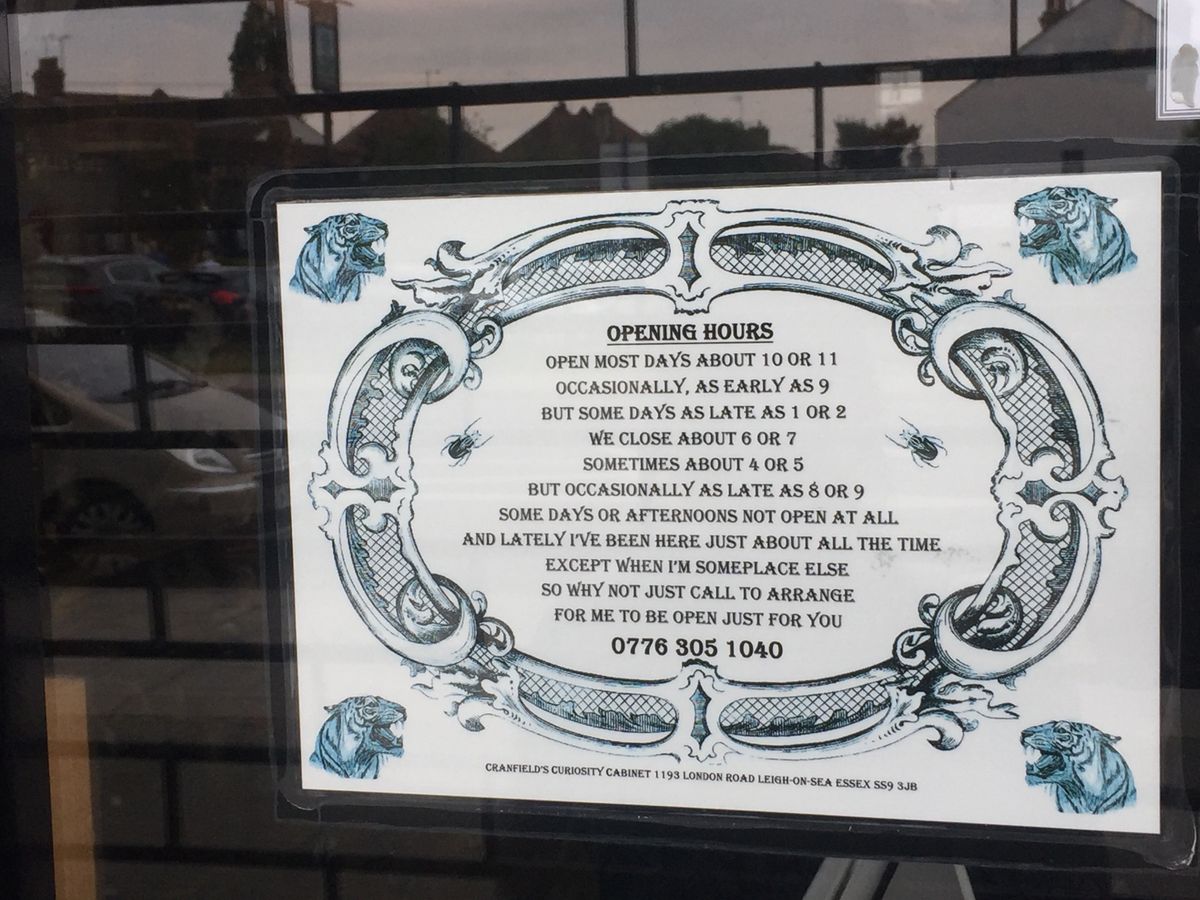 OPENING HOURS
OPEN MOST DAYS ABOUT 10 OR 11
OCCASIONALLY, AS EARLY AS 9
BUT SOME DAYS AS LATE AS 1 OR 2
WE CLOSE ABOUT 6 OR 7
SOMETIMES ABOUT 4 OR 5
BUT OCCASIONALLY AS LATE AS 8 OR 9
SOME DAYS OR AFTERNOONS NOT OPEN AT ALL
AND LATELY I'VE BEEN HERE JUST ABOUT ALL THE TIME
EXCEPT WHEN I'M SOMEPLACE ELSE
SO WHY NOT JUST CALL TO ARRANGE
FOR ME TO BE OPEN JUST FOR YOU
0776 305 1040
CRANFIELD'S CURIOSITY CABINET 1193 LONDON ROAD LEIGH-ON-SEA ESSEX SS9 3JB